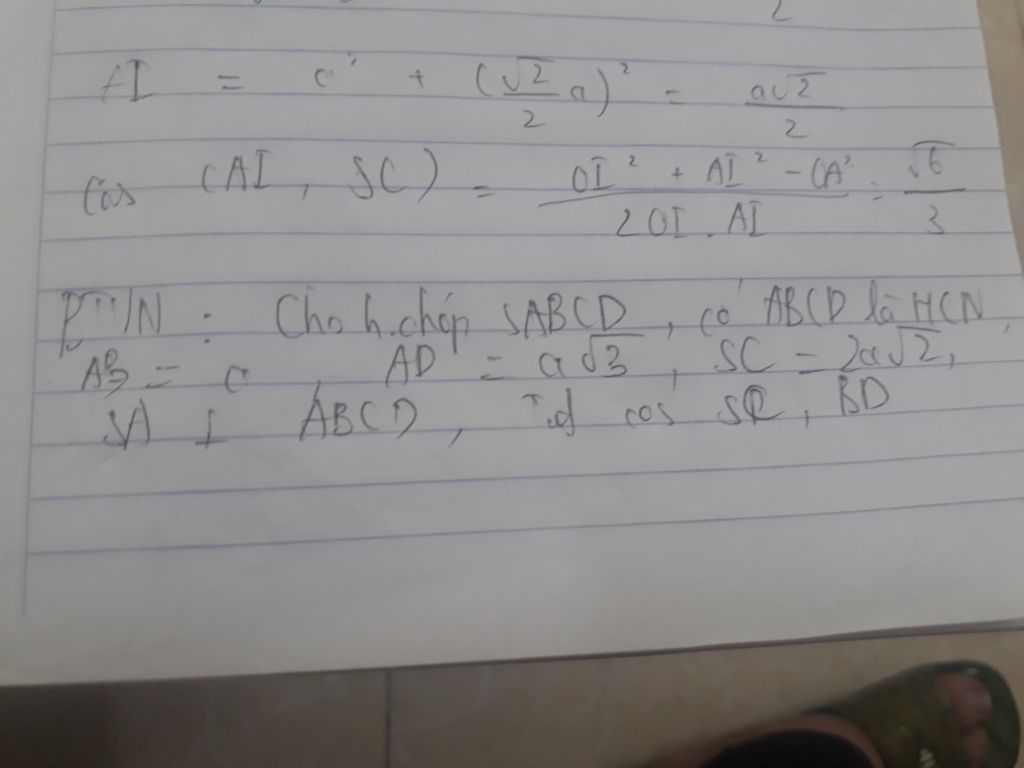 AI = a² + (√2/2 a)² = a√2/2
Cos (AI, SC) = OI² + AI² - OA² / 2OI.AI = √6/3
BTVN: Cho h.chóp SABCD, có ABCD là HCN,
AB = a, AD = a√3, SC = 2a√2,
SA ⊥ ABCD, cos SC, BD